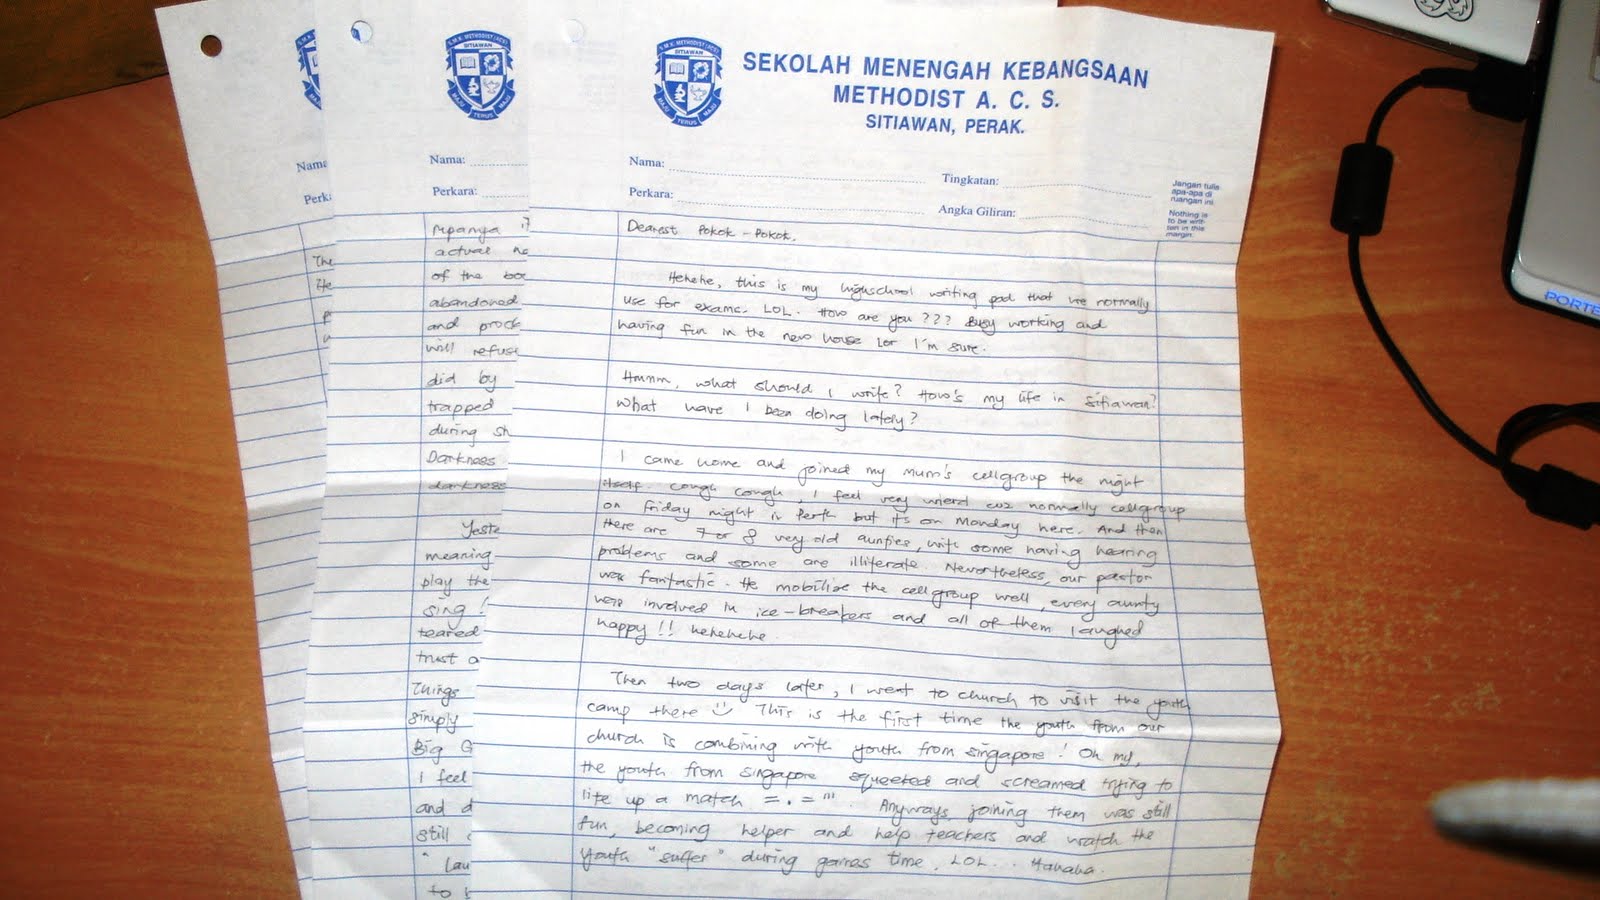 S.M.K. METHODIST (ACS)
SITIAWAN
MAJU TERUS MAJU
SEKOLAH MENENGAH KEBANGSAAN
METHODIST A. C. S.
SITIAWAN, PERAK.
Nama:
Tingkatan:
Perkara:
Angka Giliran:
Jangan tulis
apa-apa di
ruangan ini.
Nothing is
to be writ-
ten in this
margin.
Dearest Pokok-Pokok,
Hehehe, this is my highschool writing pad that we normally
use for exams. LOL. How are you??? Busy working and
having fun in the new house lor I'm sure.
Hmmm, what should I write? How's my life in Sitiawan?
What have I been doing lately?
I came home and joined my mum's cellgroup the night
itself. Cough cough, I feel very wierd coz normally cellgroup
on Friday night in Perth but it's on Monday here. And then
there are 7 or 8 very old aunties, with some having hearing
problems and some are illiterate. Nevertheless, our pastor
was fantastic. He mobilise the cellgroup well, every aunty
was involved in ice-breakers and all of them laughed
happy!! hehehehe.
Then two days later, I went to church to visit the youth
camp there :) This is the first time the youth from our
church is combining with youth from Singapore! Oh my,
the youth from Singapore squeeked and screamed trying to
lite up a match =.="'. Anyways, joining them was still
fun, becoming helper and help teachers and watch the
youth "suffer" during games time. LOL... Hahaha.
SITIAWAN
TERUS
Nama:
Perkara:
Mpanya
actual
of the
abandoned
and
will
did by
trapped
during
Darkness
darkness
meaning
play the
sing!
teared
trust
Things
simply
Big G
I feel
and
still
to
Nama
Perka
The
He
PORTE